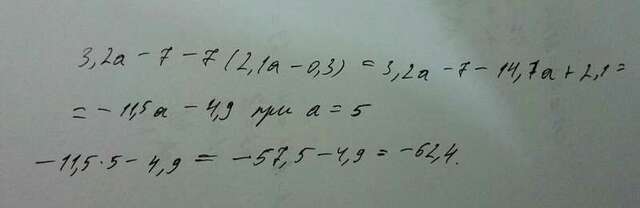 3,2a - 7 - 7 (2,1a - 0,3) = 3,2a - 7 - 14,7a + 2,1 =
= - 11,5a - 4,9 при a = 5
- 11,5 · 5 - 4,9 = - 57,5 - 4,9 = - 62,4.